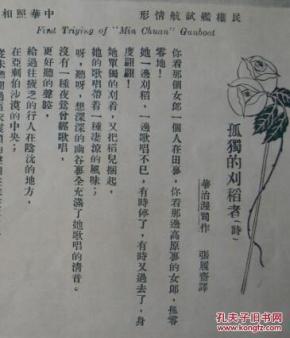 民權艦試航情形
中華照相
First Triying of "Min Chuan" Gunboat
孤獨的刈稻者（詩）
華治渥司作　張履齋譯
你看那個女郎一個人在田裏，你看那邊高原裏的女郎，孤零
零地！
她一邊刈稻，一邊歌唱不巳，有時停了，有時又過去了，身
度翩翩！
她單獨的刈着，又把稻兒捆起，
她的歌唱帶着一種凄凉的風味；
呀，聽呀，想深深的幽谷裏全充滿了她歌唱的清音。
沒有一種夜鶯曾經歌唱，
更好聽的聲腔，
給過往疲乏的行人在陰沈的地方，
在亞剌伯沙漠的中央；